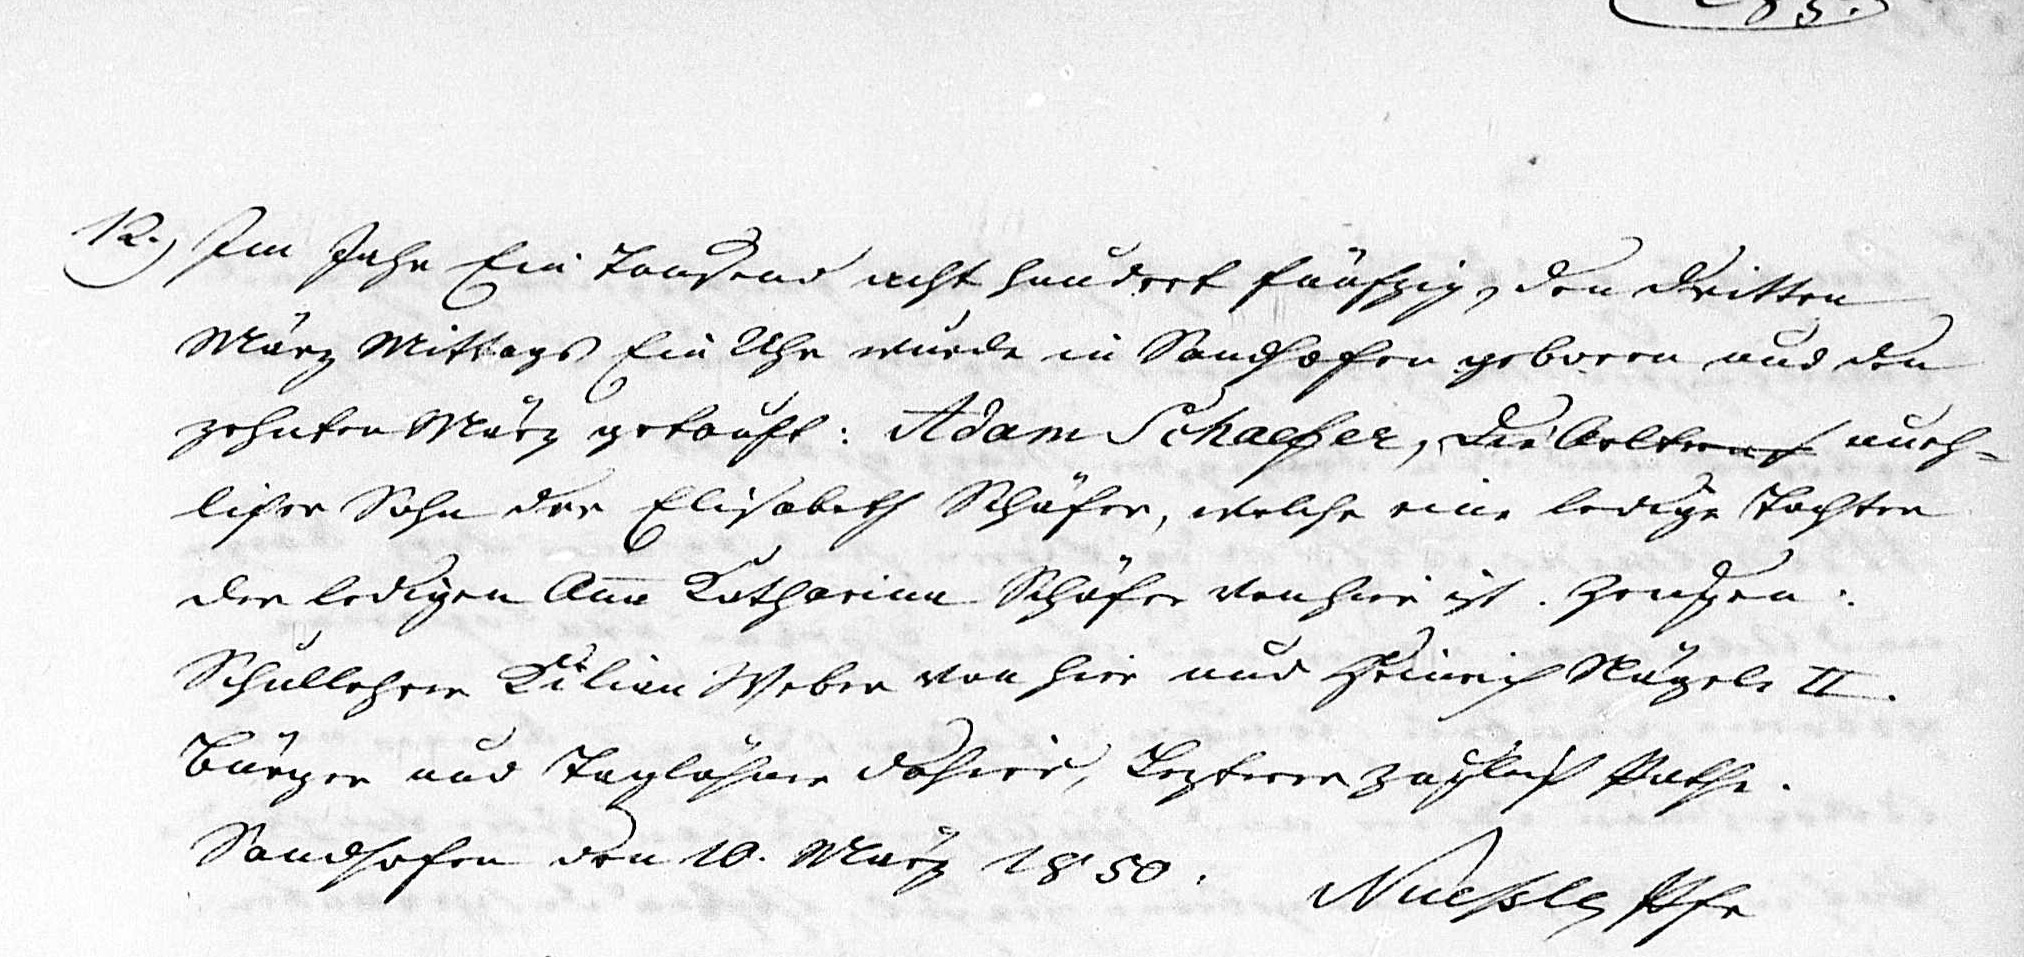 285.
12.) Im Jahr Ein Tausend acht hundert fünfzig, den dritten
März Mittags Ein Uhr wurde in Sandhofen geboren und den
zehnten März getauft: Adam Schaefer, die Aeltern uneh-
licher Sohn der Elisabeth Schäfer, welche eine ledige Tochter
der ledigen Anna Katharina Schäfer von hier ist. Zeugen:
Schullehrer Kilian Weber von hier und Heinrich Nägele II.
Bürger und Taglöhner dahier, Lezterer zugleich Pathe.
Sandhofen den 10. März 1850.
Nuessle Pfr